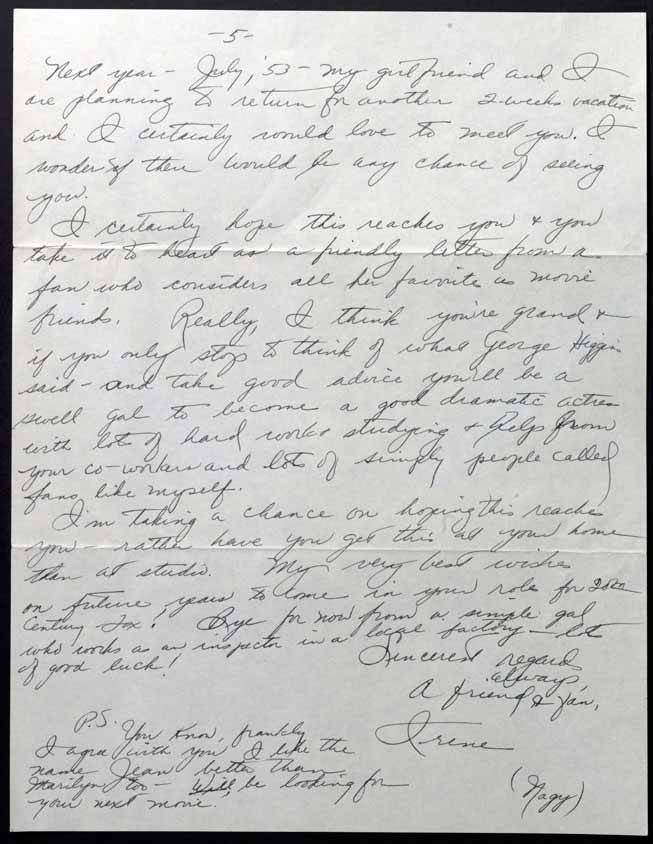 -5-
Next year - July, '53 - my girlfriend and I
are planning to return for another 2-weeks vacation
and I certainly would love to meet you. I
wonder if there would be any chance of seeing
you.
I certainly hope this reaches you & you
take it to heart as a friendly letter from a
fan who considers all her favorite as movie
friends. Really, I think you're grand &
if you only stop to think of what George Higgins
said - and take good advice you'll be a
swell gal to become a good dramatic actress
with lots of hard work & studying & help from
your co-workers and lots of simply people called
fans, like myself.
I'm taking a chance on hoping this reaches
you - rather have you get this at your home
than at studio. My very best wishes
on future years to come in your role for 20th
Century Fox! Bye for now from a simple gal
who works as an inspector in a local factory - lots
of good luck!
Sincerest regards
always
A friend & fan,
Irene
(Nagy)
P.S. You know, frankly
I agree with you I like the
name Jean better than
Marilyn too - Will be looking for
your next movie.